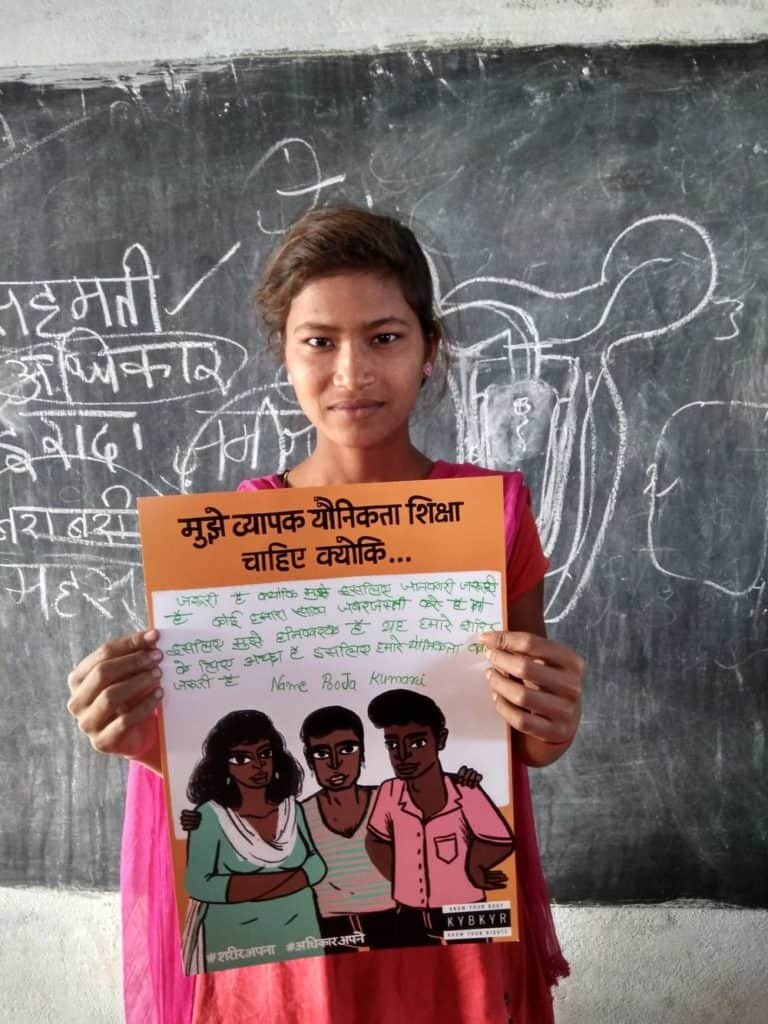 सहमती
अधिकार
इरादा
बराबरी
मुझे व्यापक यौनिकता शिक्षा
चाहिए क्योंकि...
जरूरी है क्योंकि मुझे इसलिए जानकारी जरूरी
है कोई हमारा साथ जबरजस्ती करे है
इसलिए मुझे है यह हमारे शरिर
के लिए अच्छा है इसलिए हमारे यौनिकता
जरूरी है Name Pooja Kumari
KNOW YOUR BODY
KYBKYR
KNOW YOUR RIGHTS
#शरीरअपना #अधिकारअपने